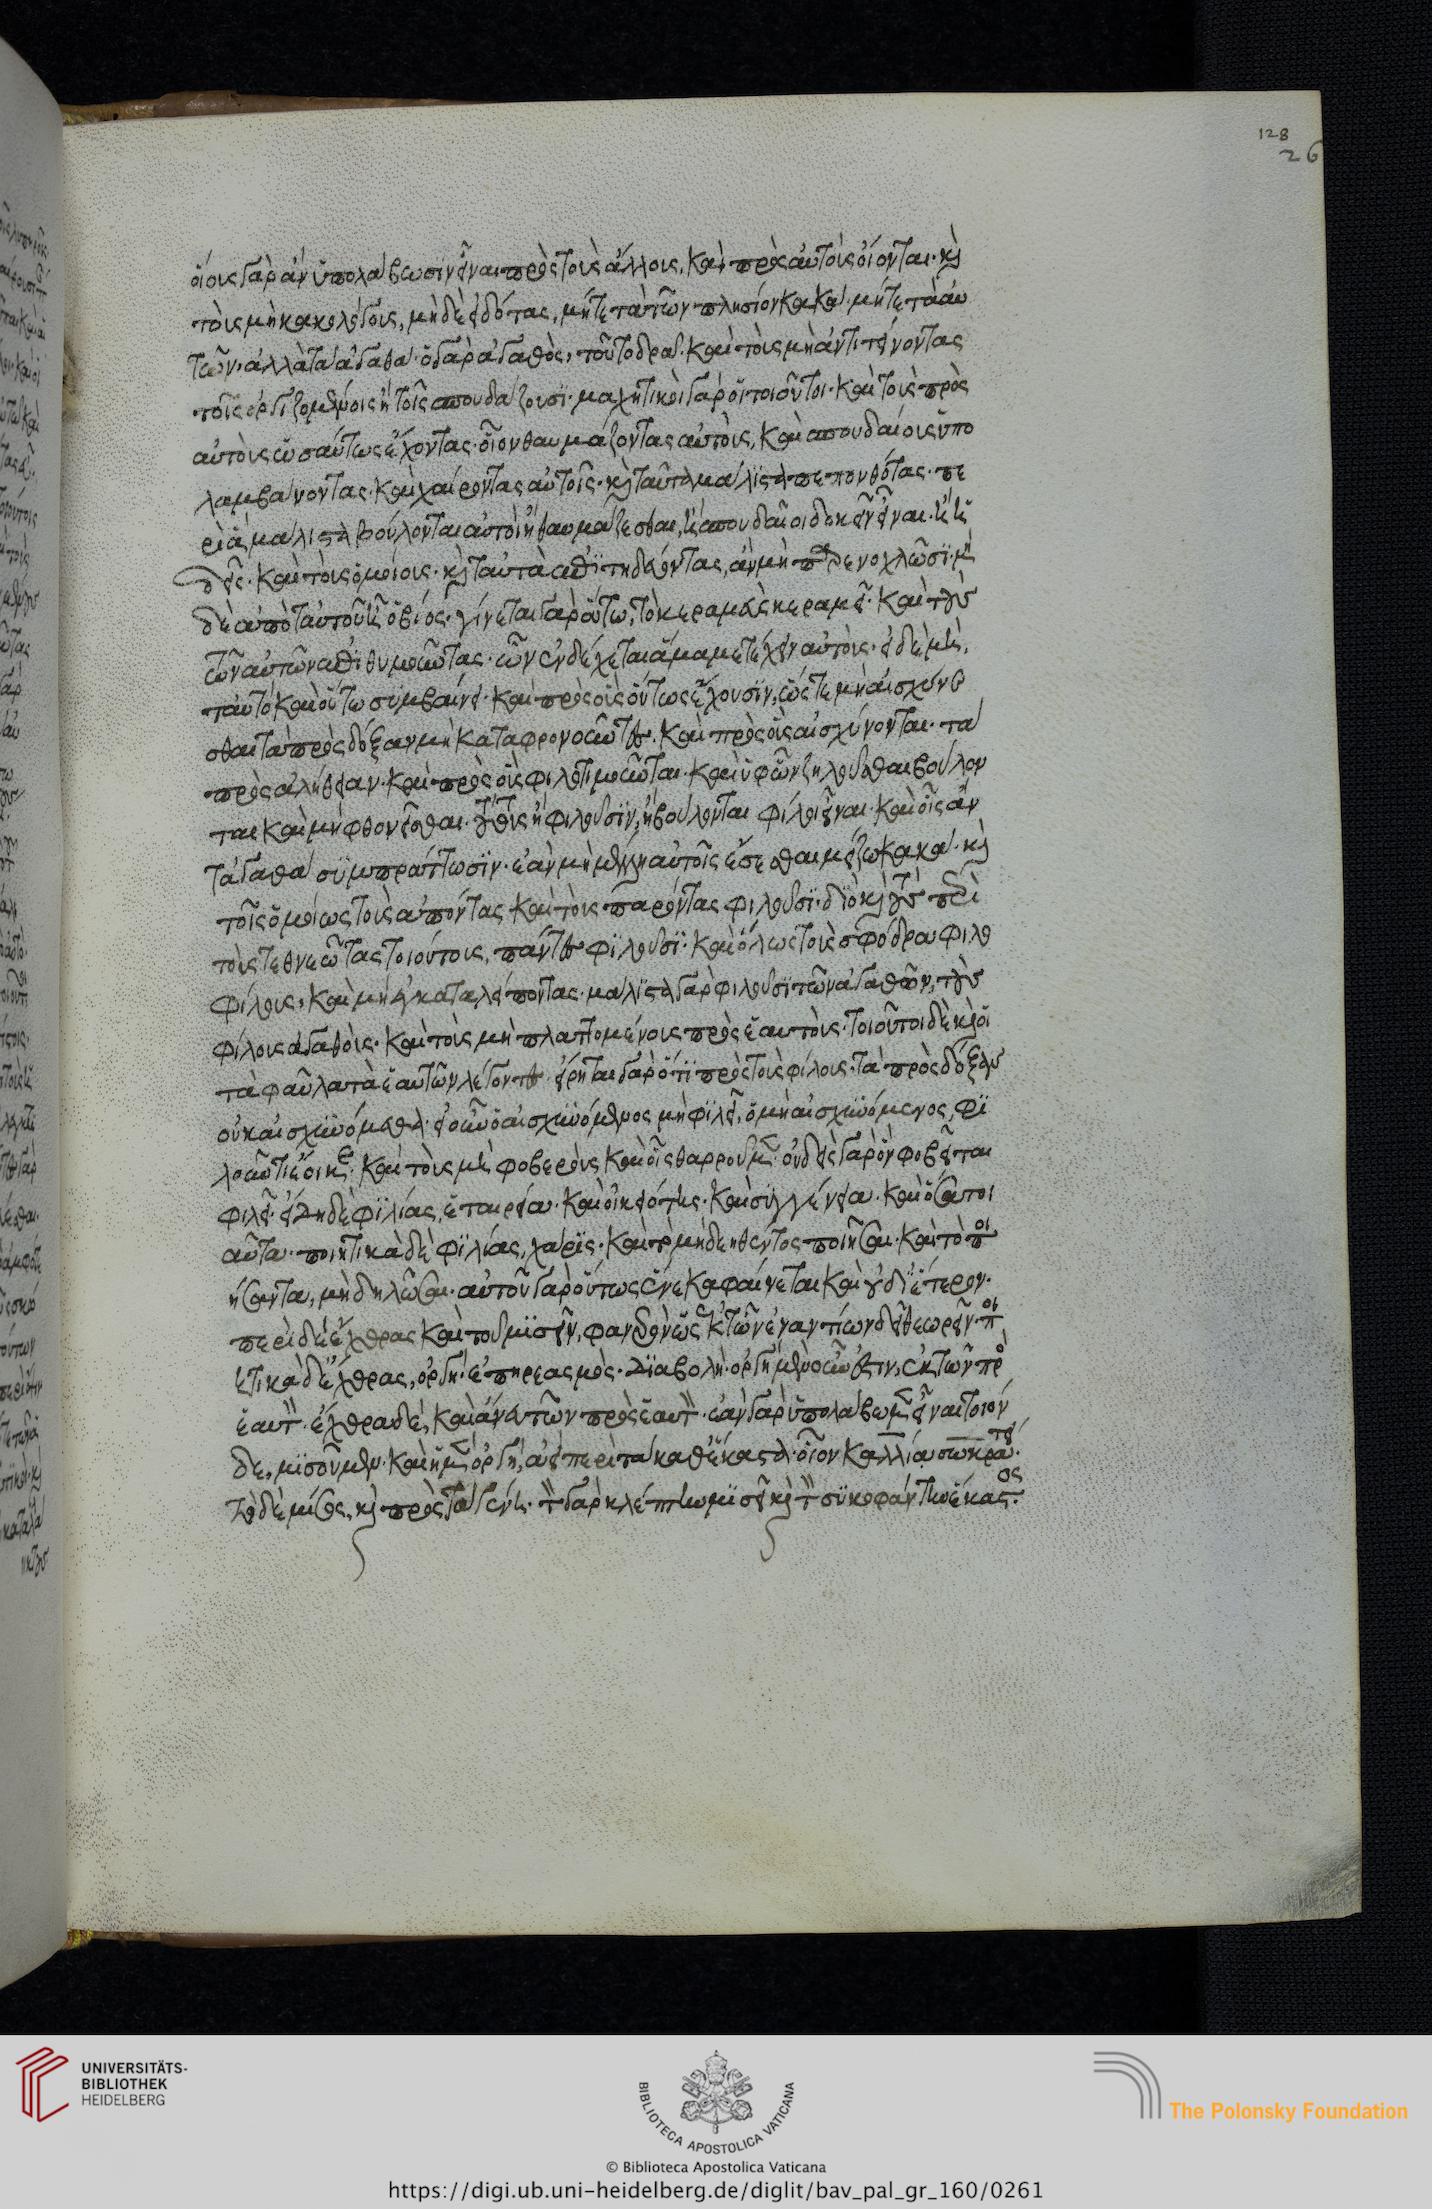 128
26
οἵους γὰρ ἂν ὑπολάβωσιν εἶναι πρὸς τοὺς ἄλλους, καὶ πρὸς αὐτοὺς οἴονται· κὶ
τοὺς μὴ κακολόγους, μηδὲ εἰδότας, μήτε τὰ τῶν πλησίον κακά· μήτε τὰ αὐ
τῶν· ἀλλὰ τὰ ἀγαθά· ὁ γὰρ ἀγαθὸς, τοῦτο δρᾶ· καὶ τοὺς μὴ ἀντιτείνοντας
τοῖς ὀργιζομένοις ἢ τοῖς σπουδάζουσι· μαχητικοὶ γὰρ οἱ τοιοῦτοι· καὶ τοὺς πρὸς
αὐτοὺς ὡσαύτως ἔχοντας· οἷον θαυμάζοντας αὐτοὺς, καὶ σπουδαίους ὑπο
λαμβάνοντας· καὶ χαίροντας αὐτοῖς· κὶ ταῦτα μάλιστα πεπονθότας· πε
ρὶ ἃ μάλιστα βούλονται αὐτοὶ ἢ θαυμάζεσθαι, ἢ σπουδαῖοι δοκεῖν εἶναι· ἢ ἡ
δεῖς· καὶ τοὺς ὁμοίους· κὶ ταὐτὰ ἐπιτηδεύοντας, ἂν μὴ παρενοχλῶσι· μη
δὲ ἀπὸ ταὐτοῦ ᾖ ὁ βίος· γίνεται γὰρ οὕτω, τὸ κεραμεὺς κεραμεῖ· καὶ τοὺς
τῶν αὐτῶν ἐπιθυμοῦντας· ὧν ἐνδέχεται ἅμα μετέχειν αὐτοὺς· εἰ δὲ μὴ,
ταὐτὸ καὶ οὕτω συμβαίνει· καὶ πρὸς οὓς οὕτως ἔχουσιν, ὥστε μὴ αἰσχύνε
σθαι τὰ πρὸς δόξαν μὴ καταφρονοῦντες· καὶ πρὸς οὓς αἰσχύνονται· τὰ
πρὸς ἀλήθειαν· καὶ πρὸς οὓς φιλοτιμοῦνται· καὶ ὑφ' ὧν ζηλοῦσθαι βούλον
ται καὶ μὴ φθονεῖσθαι· τούτους ἢ φιλοῦσιν, ἢ βούλονται φίλοι εἶναι· καὶ οἷς ἂν
τἀγαθὰ συμπράττωσιν· ἐὰν μὴ μέλλῃ αὐτοῖς ἔσεσθαι μείζω κακά· κὶ
τοῖς ὁμοίως τοὺς ἀπόντας καὶ τοὺς παρόντας φιλοῦσι· διὸ κὶ τοὺς περὶ
τοὺς τεθνεῶτας τοιούτους, πάντες φιλοῦσι· καὶ ὅλως τοὺς σφόδρα φιλο
φίλους, καὶ μὴ ἐγκαταλείποντας· μάλιστα γὰρ φιλοῦσι τῶν ἀγαθῶν, τοὺς
φίλους ἀγαθοὺς· καὶ τοὺς μὴ πλαττομένους πρὸς ἑαυτοὺς· τοιοῦτοι δὲ κὶ οἱ
τὰ φαῦλα τὰ ἑαυτῶν λέγοντες· εἴρηται γὰρ ὅτι πρὸς τοὺς φίλους· τὰ πρὸς δόξαν
οὐκ αἰσχυνόμεθα· εἰ οὖν ὁ αἰσχυνόμενος μὴ φιλεῖ, ὁ μὴ αἰσχυνόμενος, φι
λοῦντι ἔοικε· καὶ τοὺς μὴ φοβεροὺς καὶ οἷς θαρροῦμεν· οὐδεὶς γὰρ ὃν φοβεῖται
φιλεῖ· εἴδη δὲ φιλίας, ἑταιρεία· καὶ οἰκειότης· καὶ συγγένεια· καὶ ὅσα τοι
αῦτα· ποιητικὰ δὲ φιλίας, χάρις· καὶ τὸ μὴ δεηθέντος ποιῆσαι· καὶ τὸ ποι
ήσαντα, μὴ δηλῶσαι· αὐτοῦ γὰρ οὕτως ἕνεκα φαίνεται καὶ οὐ δι' ἕτερον·
περὶ δὲ ἔχθρας καὶ τοῦ μισεῖν, φανερὸν ὡς ἐκ τῶν ἐναντίων δεῖ θεωρεῖν· ποι
ητικὰ δὲ ἔχθρας, ὀργὴ· ἐπηρεασμὸς· διαβολὴ· ὀργὴ μὲν οὖν ἐστιν, ἐκ τῶν πρὸ
ἑαυτὸν· ἔχθρα δὲ, καὶ ἄνευ τῶν πρὸς ἑαυτὸν· ἐὰν γὰρ ὑπολάβωμεν εἶναι τοιόν
δε, μισοῦμεν· καὶ ἡ μὲν ὀργὴ, ἀεὶ περὶ τὰ καθέκαστα· οἷον Καλλίᾳ Σωκράτει·
τὸ δὲ μῖσος, κὶ πρὸς τὰ γένη· τὸν γὰρ κλέπτην μισεῖ κὶ τὸν συκοφάντην ἕκαστος·
UNIVERSITÄTS-
BIBLIOTHEK
HEIDELBERG
BIBLIOTECA APOSTOLICA VATICANA
The Polonsky Foundation
© Biblioteca Apostolica Vaticana
https://digi.ub.uni-heidelberg.de/diglit/bav_pal_gr_160/0261